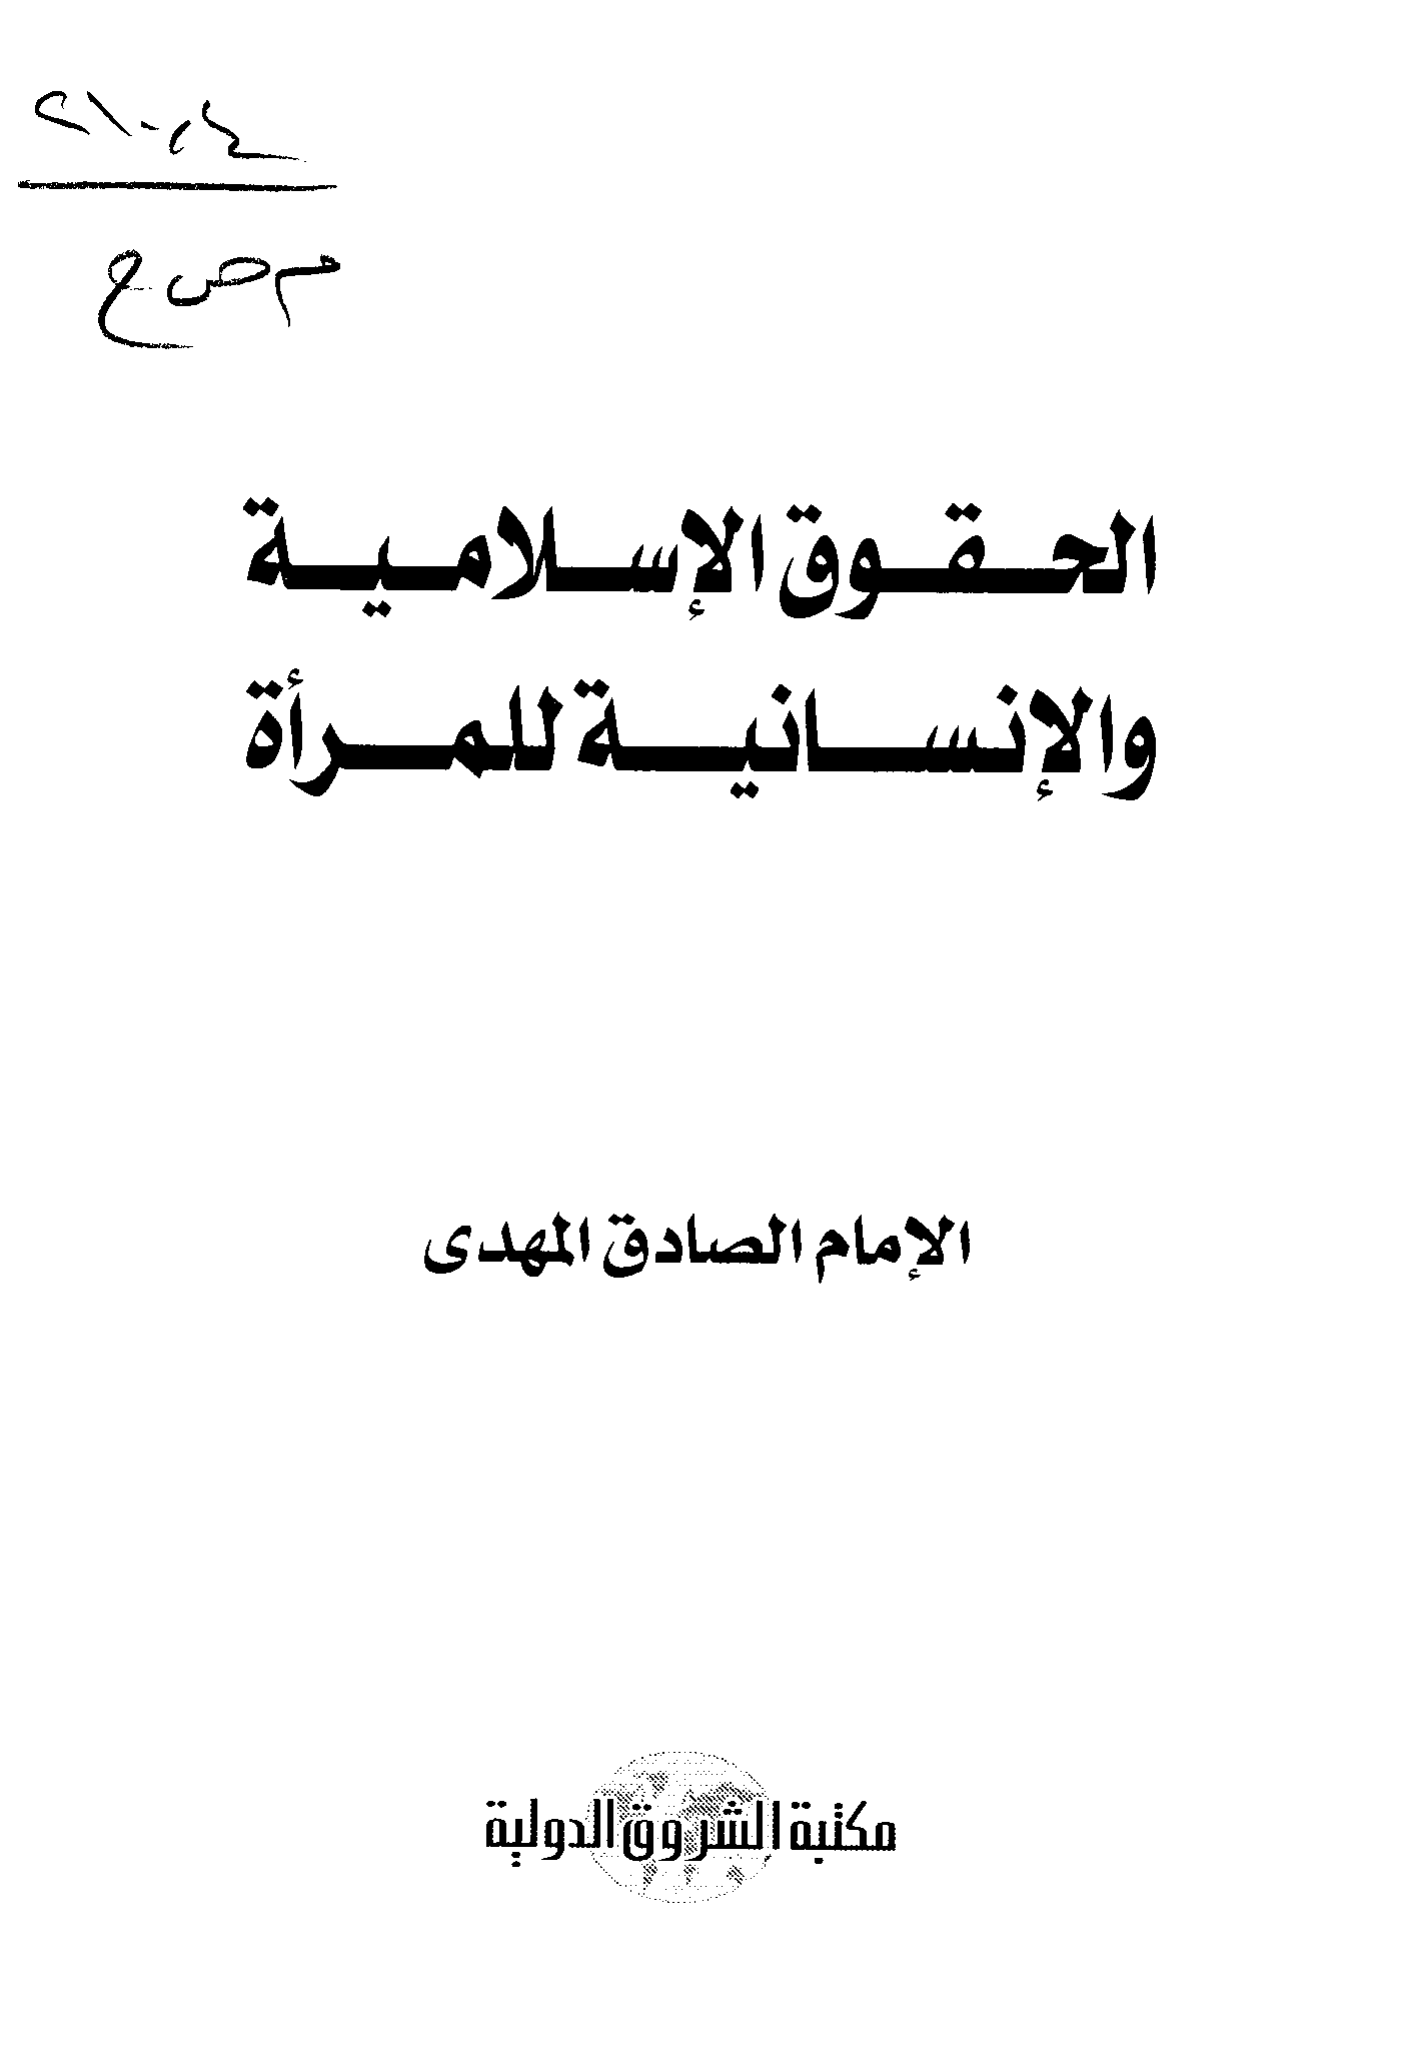 م ص ح
الحقوق الإسلامية
والإنسانية للمرأة
الإمام الصادق المهدى
مكتبة الشروق الدولية